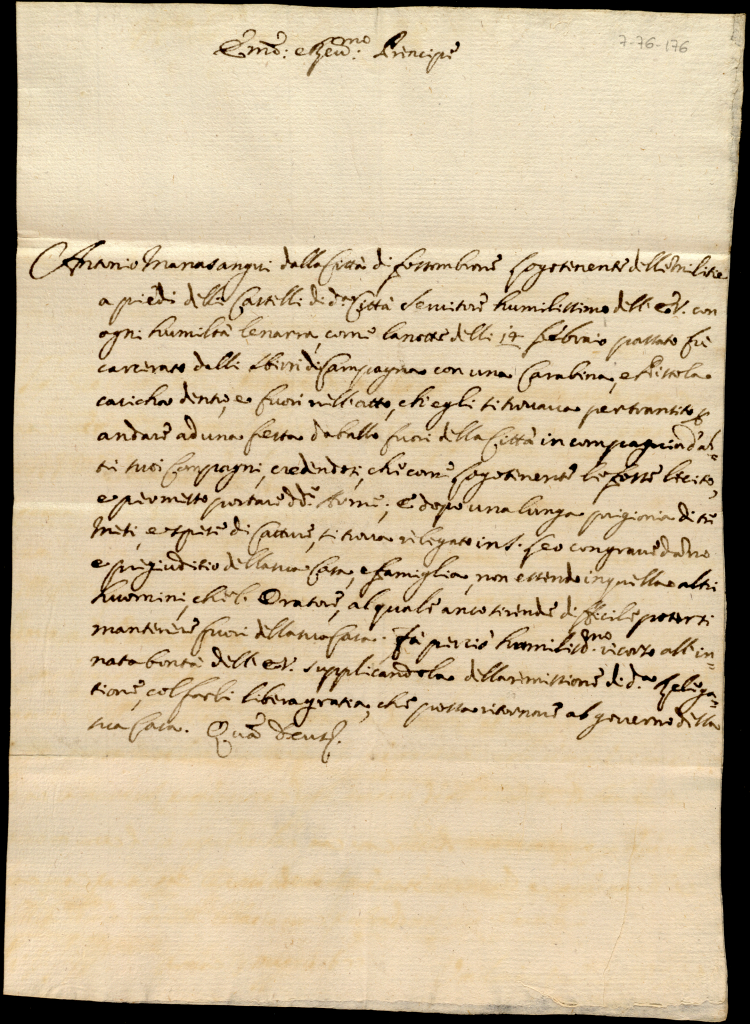 7-76-176
Emo: e Reu.mo: Principe
Antonio Manasangui dalla Città di fossombrone logotenente delle militie
a piedi delli Castelli di da Città seruitore humilissimo dell' E.V. con
ogni humiltà le narra, come la notte delli 14 febraio passato fù
carcerato dalli sbirri di Campagna con una Carabina, e Pistola
caricha dentro, e fuori nell'atto, che egli si trouaua per transito p
andare ad una festa da ballo fuori della Città in compagnia d'al=
tri suoi Compagni, credendosi, che come logotenente li fosse lecito,
e permesso portare dde Arme; e dopo una longa prigionia di tre
mesi, e spese di catture, si troua relegato in S. Leo con graue danno
e pregiuditio della sua Casa, e famiglia, non essendo in quella altri
huomini, che l' Oratore, al quale anco si rende difficile potersi
mantenere fuori della sua Casa. Fà perciò humiliss.mo ricorso all' in=
nata bontà dell' E.V. supplicandola della remissione di d.a Relega=
tione, col farli libera gratia, che possa ritornare al gouerno della
sua Casa. Quã Deus